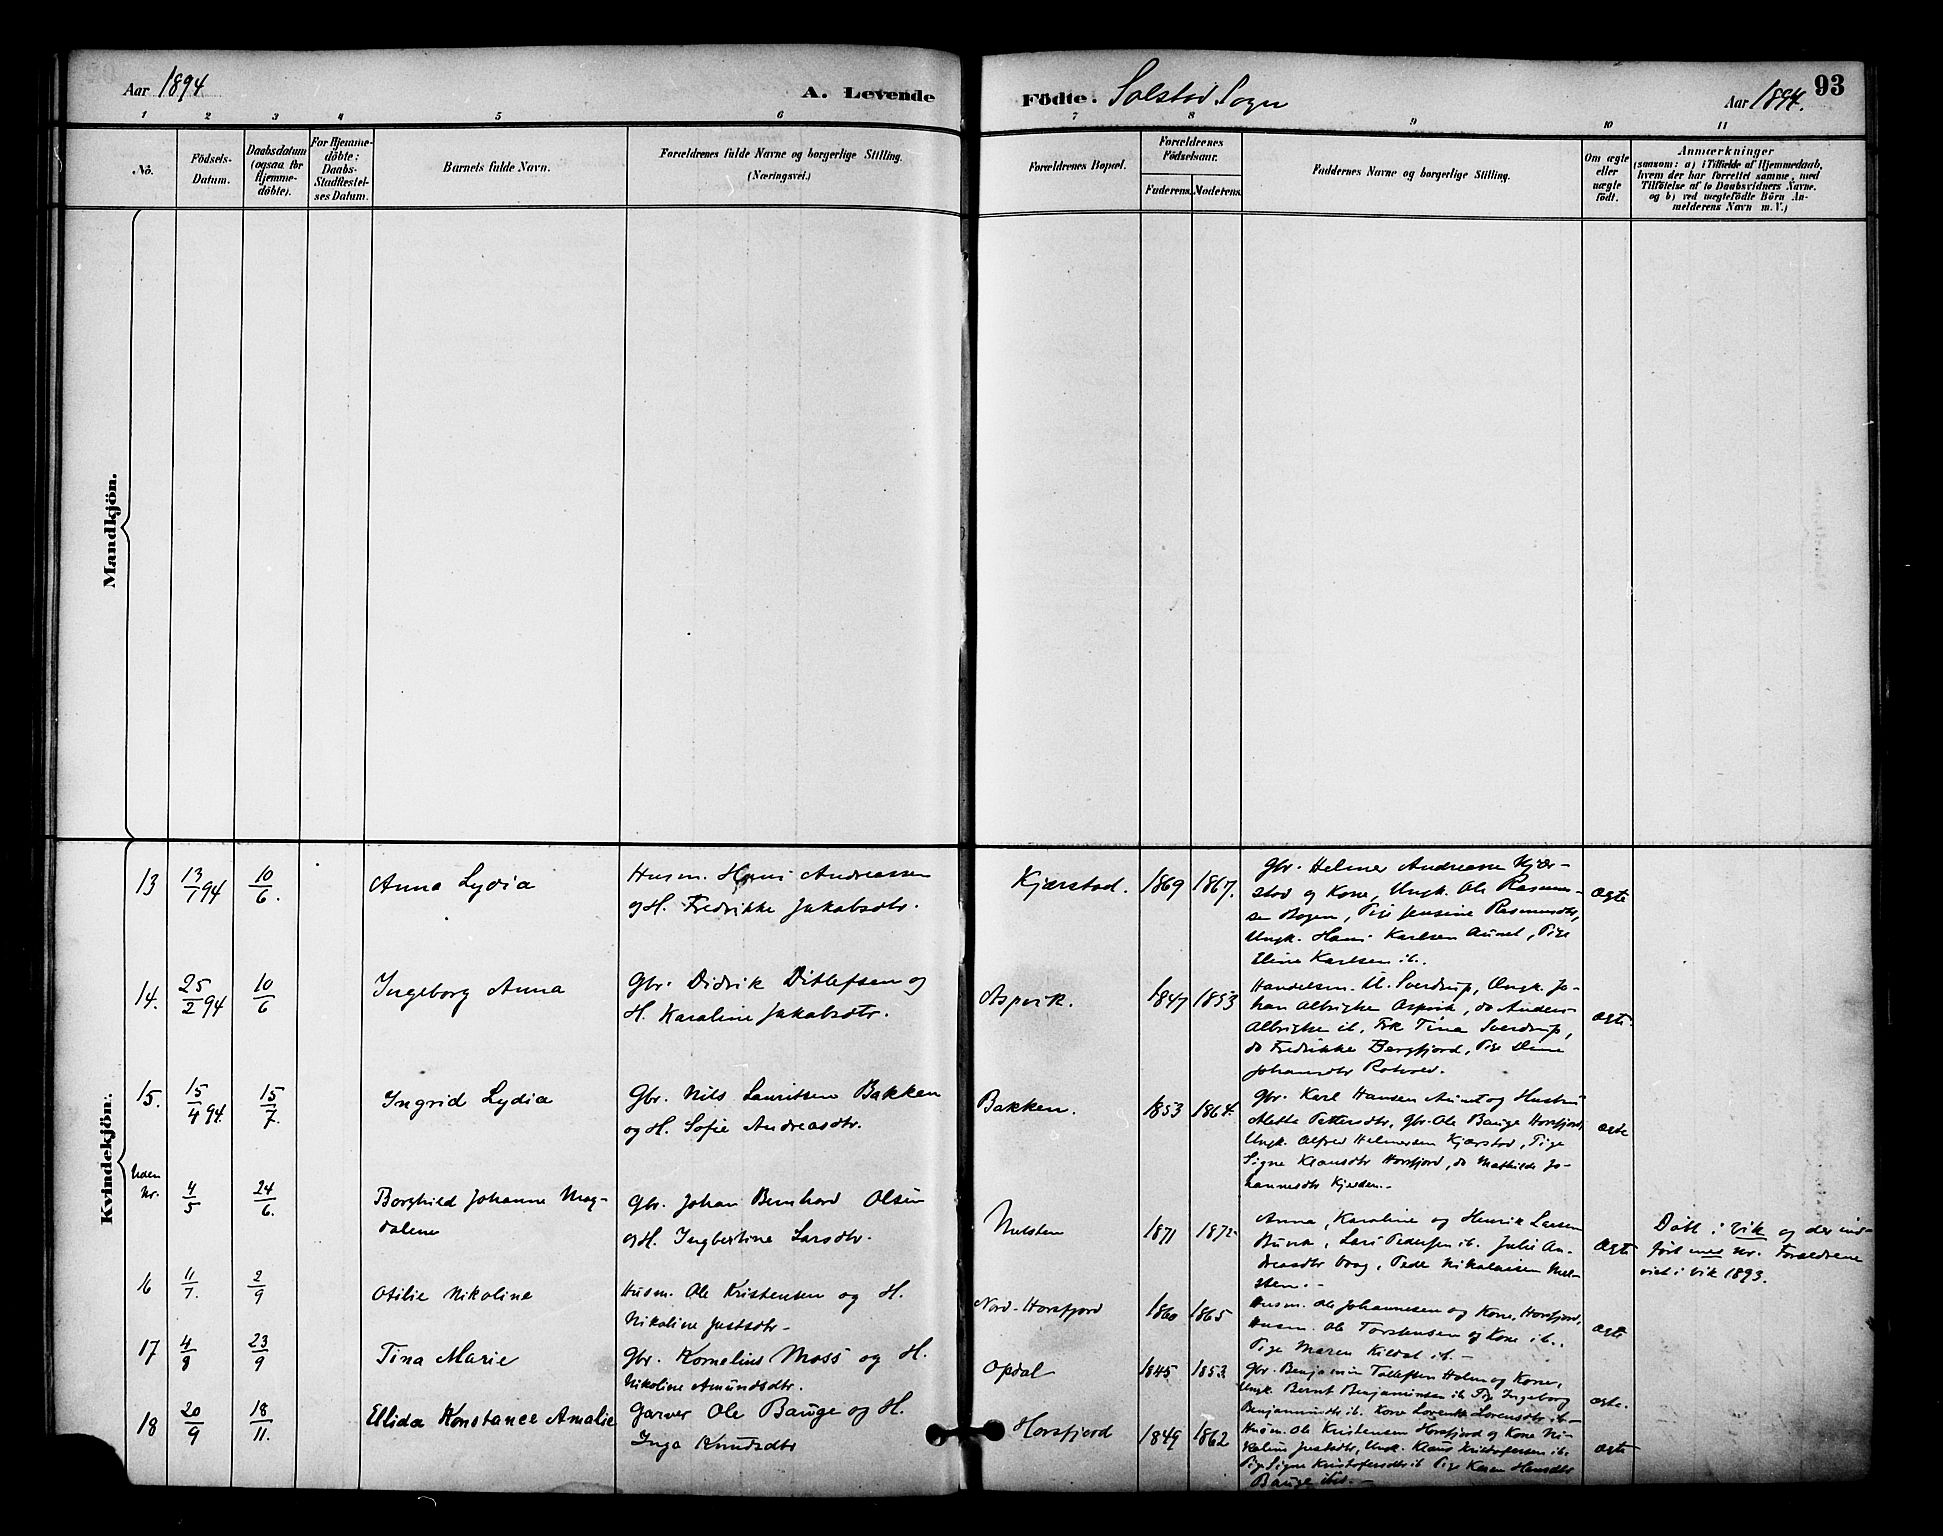 Aar 1894
A. Levende
Födte. Solstad Sogn
Aar 1894.
93
1 2 3 4 5 6 7 8 9 10 11
No.
Födsels-Datum.
Daabsdatum (ogsaa for Hjemme-döbte).
For Hjemme-döbte: Daabs-Stadfestel-ses Datum.
Barnets fulde Navn.
Forældrenes fulde Navne og borgerlige Stilling. (Næringsvei.)
Forældrenes Bopæl.
Forældrenes Födselsaar.
Faderens. Moderens.
Faddernes Navne og borgerlige Stilling.
Om ægte eller uægte født.
Anmærkninger
(saasom: a) i Tilfælde af Hjemmedaab,
hvem der har forrettet samme, med
Tilföielse af to Daabsvidners Navne,
og b) ved uægtefödte Börn An-
melderens Navn m. V.)
Mandkjön.
Kvindekjön.
13 13/1 94 10/6. Anna Lydia
Husm. Hans Andreassen
og H. Fredrikke Jakobsdtr.
Kjærstad. 1869 1867.
Gbr. Helmer Andreasse Kjær-
stad og Kone, Ungk. Ole Rasmus-
sen Bogen, Pige Jensine Rasmusdtr,
Ungk. Hans Karlsen Aunet, Pige
Eline Karlsen ib.
Ægte
14. 25/2 94 10/6 Ingeborg Anna
Gbr. Didrik Ditlefsen og
H. Karoline Jakobsdtr.
Aspvik. 1847 1853
Handelsm. U. Sverdrup, Ungk. Jo-
han Albrigtsen Aspvik, do Anders
Albrigtsen ib, Frk Tina Sverdrup,
do Fredrikke Bergfjord, Pige
Johansdtr
ægte.
15. 15/4 94. 15/7. Ingrid Lydia
Gbr. Nils Lauritsen Bakken
og H. Sofie Andreasdtr.
Bakken. 1853 1864.
Gbr. Karl Hansen Aunet og Hustru
Mette Pettersdtr, Gbr. Ole Bauge Horsfjord,
Ungk. Alfred Helmersen Kjærstad, Pige
Signe Klausdtr Horsfjord, do Mathilde Jo-
hannesdtr
ægte
Uden Nr. 4/5 24/6. Borghild Johanne Mag-
dalene
Gbr. Johan Bernhard Olsen
og H. Ingbertine Larsdtr.
Melsten 1871 1872
Anna, Karoline og Henrik Larsen
Lars Pedersen ib. Julie An-
dreasdtr Vaag, Peder Nikolaisen Mel-
sten.
Ægte
Döbt i Vik og der ind-
fört med Nr. Forældrene
viet i Vik 1893.
6 11/7. 2/9 Otilie Nikoline
Husm. Ole Kristensen og H.
Nikoline Justsdtr.
Nord-Horsfjord 1860 1865
Husm. Ole Johannesen og Kone, Horsfjord,
Husm. Ole Torstensen og Kone ib.
Pige Maren Kildal ib.
ægte
17 4/8 23/9 Tina Marie
Gbr. Kornelius Moss og H.
Nikoline Amundsdtr.
Opdal 1845 1853
Gbr. Benjamin Tollefsen Holm og Kone,
Ungk. Bernt Benjaminsen ib. Pig Ingeborg
Benjaminsdtr ib. Kone Lorensdtr ib.
ægte.
18 20/9 18/11. Ellida Konstance Amalie
Garver Ole Bauge og H.
Inga Knudsdtr
Horsfjord 1849 1862
Husm. Ole Kristensen Horsfjord og Kone Ni-
koline Justsdtr, Ungk. Klaus Kristofersen ib.
Pige Signe Kristofersdtr ib Pige Karen Hansdtr
Bauge ibd.
ægte